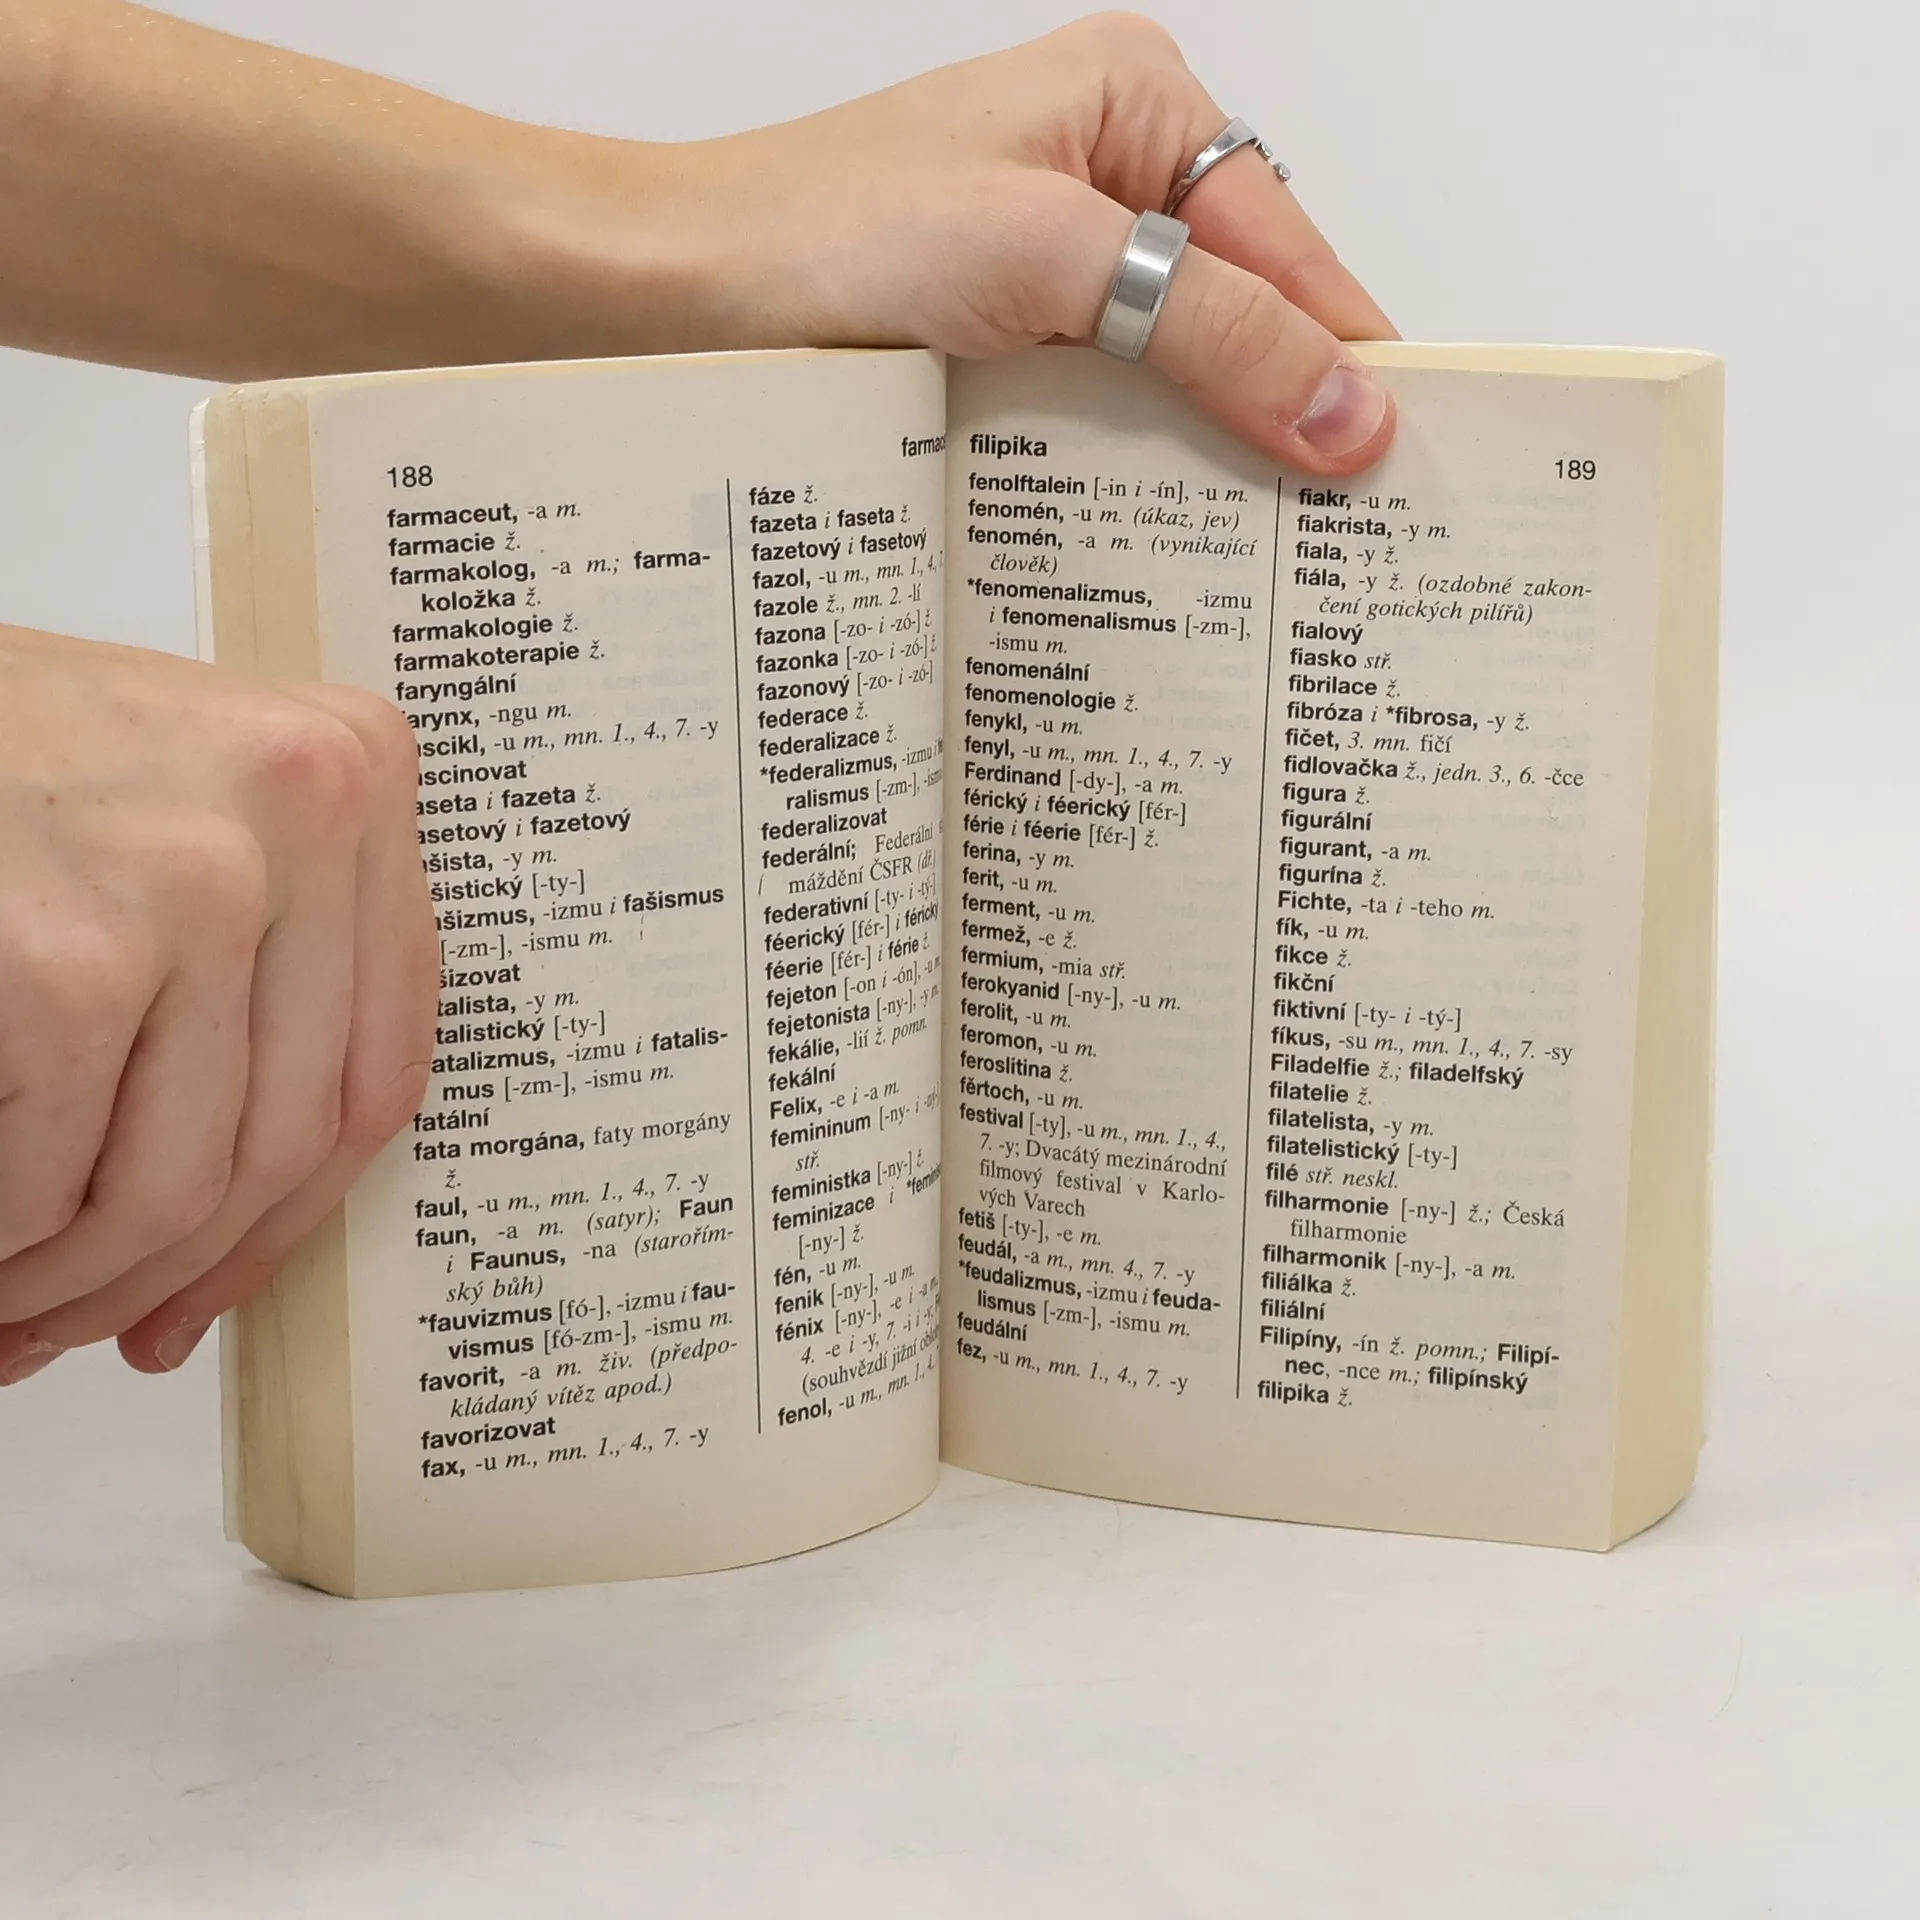 188
farmaceut, -a m.
farmacie ž.
farmakolog, -a m.; farma-
koložka ž.
farmakologie ž.
farmakoterapie ž.
faryngální
-ngu m.
-u m., mn. 1., 4., 7. -y
i fazeta ž.
i fazetový
-y m.
[-ty-]
-izmu i fašismus
[-zm-], -ismu m.
-y m.
[-ty-]
-izmu i fatalis-
mus [-zm-], -ismu m.
fatální
fata morgána, faty morgány
ž.
faul, -u m., mn. 1., 4., 7. -y
faun, -a m. (satyr); Faun
i Faunus, -na (starořím-
ský bůh)
*fauvizmus [fó-], -izmu i fau-
vismus [fó-zm-], -ismu m.
favorit, -a m. živ. (předpo-
kládaný vítěz apod.)
favorizovat
fax, -u m., mn. 1., 4., 7. -y
fáze ž.
fazeta i faseta ž.
fazetový i fasetový
fazol, -u m., mn. 1., 4.,
fazole ž., mn. 2. -lí
fazona [-zo- i -zó-] ž.
fazonka [-zo- i -zó-] ž.
fazonový [-zo- i -zó-]
federace ž.
federalizace ž.
*federalizmus, -izmu i
ralismus [-zm-],
federalizovat
federální; Federální
máždění ČSFR (dř.)
federativní [-ty- i -tý-]
féerický [fér-] i férický
féerie [fér-] i férie ž.
fejeton [-on i -ón], -u
fejetonista [-ny-], -y m.
fekálie, -lií ž. pomn.
fekální
Felix, -e i -a m.
femininum [-ny- i
stř.
feministka [-ny-] ž.
feminizace i
[-ny-] ž.
fén, -u m.
fenik [-ny-], -u m.
fénix [-ny-], -e i -a m.
4. -e i -y, 7. -i i -y;
(souhvězdí jižní
fenol, -u m., mn. 1., 4.
filipika
189
fenolftalein [-in i -ín], -u m.
fenomén, -u m. (úkaz, jev)
fenomén, -a m. (vynikající
člověk)
*fenomenalizmus, -izmu
i fenomenalismus [-zm-],
-ismu m.
fenomenální
fenomenologie ž.
fenykl, -u m.
fenyl, -u m., mn. 1., 4., 7. -y
Ferdinand [-dy-], -a m.
férický i féerický [fér-]
férie i féerie [fér-] ž.
ferina, -y m.
ferit, -u m.
ferment, -u m.
fermež, -e ž.
fermium, -mia stř.
ferokyanid [-ny-], -u m.
ferolit, -u m.
feromon, -u m.
feroslitina ž.
fěrtoch, -u m.
festival [-ty], -u m., mn. 1., 4.,
7. -y; Dvacátý mezinárodní
filmový festival v Karlo-
vých Varech
fetiš [-ty-], -e m.
feudál, -a m., mn. 4., 7. -y
*feudalizmus, -izmu i feuda-
lismus [-zm-], -ismu m.
feudální
fez, -u m., mn. 1., 4., 7. -y
fiakr, -u m.
fiakrista, -y m.
fiala, -y ž.
fiála, -y ž. (ozdobné zakon-
čení gotických pilířů)
fialový
fiasko stř.
fibrilace ž.
fibróza i *fibrosa, -y ž.
fičet, 3. mn. fičí
fidlovačka ž., jedn. 3., 6. -čce
figura ž.
figurální
figurant, -a m.
figurína ž.
Fichte, -ta i -teho m.
fík, -u m.
fikce ž.
fikční
fiktivní [-ty- i -tý-]
fíkus, -su m., mn. 1., 4., 7. -sy
Filadelfie ž.; filadelfský
filatelie ž.
filatelista, -y m.
filatelistický [-ty-]
filé stř. neskl.
filharmonie [-ny-] ž.; Česká
filharmonie
filharmonik [-ny-], -a m.
filiálka ž.
filiální
Filipíny, -ín ž. pomn.; Filipí-
nec, -nce m.; filipínský
filipika ž.